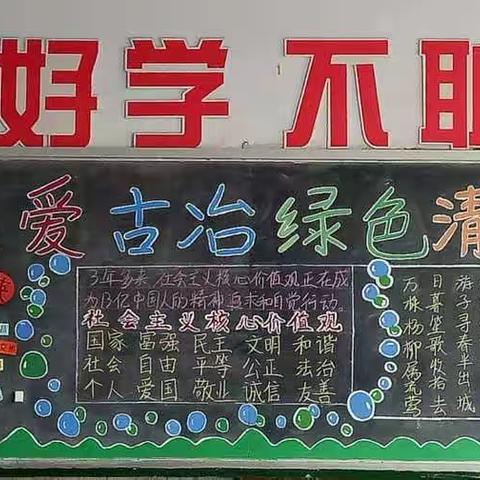 好学 不
爱古冶绿色清
3年多来,社会主义核心价值观正在成
为13亿中国人的精神追求和自觉行动。
社会主义核心价值观
国家 富强 民主 文明 和谐
社会 自由 平等 公正 法治
个人 爱国 敬业 诚信 友善
游子寻春半出城
日暮笙歌收拾去
万株杨柳属流莺